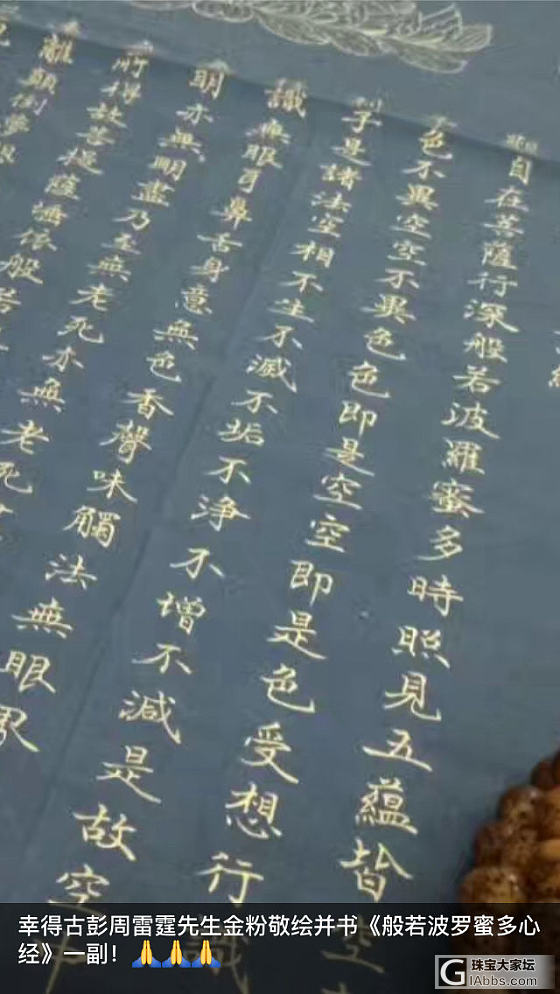 自在菩薩行深般若波羅蜜多時照見五蘊皆空
色不異空空不異色色即是空空即是色受想行識
子是諸法空相不生不滅不垢不淨不增不減是故空中
識無眼耳鼻舌身意無色香聲味觸法無眼界
明亦無明盡乃至無老死亦無老死
所得故菩提薩埵依般若
離顛倒夢想
幸得古彭周雷霆先生金粉敬绘并书《般若波罗蜜多心
经》一副！🙏🙏🙏
珠宝大家坛
GIAbbs.com